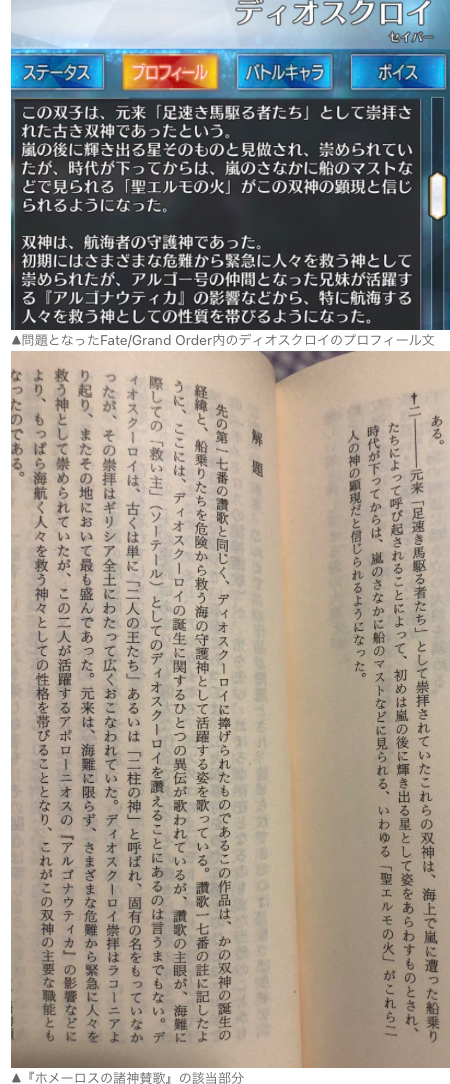 ディオスクロイ
セイバー
ステータス
プロフィール
バトルキャラ
ボイス
この双子は、元来「足速き馬駆る者たち」として崇拝さ
れた古き双神であったという。
嵐の後に輝き出る星そのものと見做され、崇められてい
たが、時代が下ってからは、嵐のさなかに船のマストな
どで見られる「聖エルモの火」がこの双神の顕現と信じ
られるようになった。
双神は、航海者の守護神であった。
初期にはさまざまな危難から緊急に人々を救う神として
崇められたが、アルゴー号の仲間となった兄妹が活躍す
る『アルゴナウティカ』の影響などから、特に航海する
人々を救う神としての性質を帯びるようになった。
▲問題となったFate/Grand Order内のディオスクロイのプロフィール文
ある。
†二――元来「足速き馬駆る者たち」として崇拝されていたこれらの双神は、海上で嵐に遭った船乗り
たちによって呼び起されることによって、初めは嵐の後に輝き出る星として姿をあらわすものとされ、
時代が下ってからは、嵐のさなかに船のマストなどに見られる、いわゆる「聖エルモの火」がこれら二
人の神の顕現だと信じられるようになった。
解題
先の第一七番の讃歌と同じく、ディオスクーロイに捧げられたものであるこの作品は、かの双神の誕生の
経緯と、船乗りたちを危険から救う海の守護神として活躍する姿を歌っている。讃歌一七番の註に記したよ
うに、ここには、ディオスクーロイの誕生に関するひとつの異伝が歌われているが、讃歌の主眼が、海難に
際しての「救い主」（ソーテール）としてのディオスクーロイを讃えることにあるのは言うまでもない。デ
ィオスクーロイは、古くは単に「二人の王たち」あるいは「二柱の神」と呼ばれ、固有の名をもっていなか
ったが、その崇拝はギリシア全土にわたって広くおこなわれていた。ディオスクーロイ崇拝はラコーニアよ
り起り、またその地において最も盛んであった。元来は、海難に限らず、さまざまな危難から緊急に人々を
救う神として崇められていたが、この二人が活躍するアポローニオスの『アルゴナウティカ』の影響などに
より、もっぱら海航く人々を救う神々としての性格を帯びることとなり、これがこの双神の主要な職能とも
なったのである。
▲『ホメーロスの諸神賛歌』の該当部分